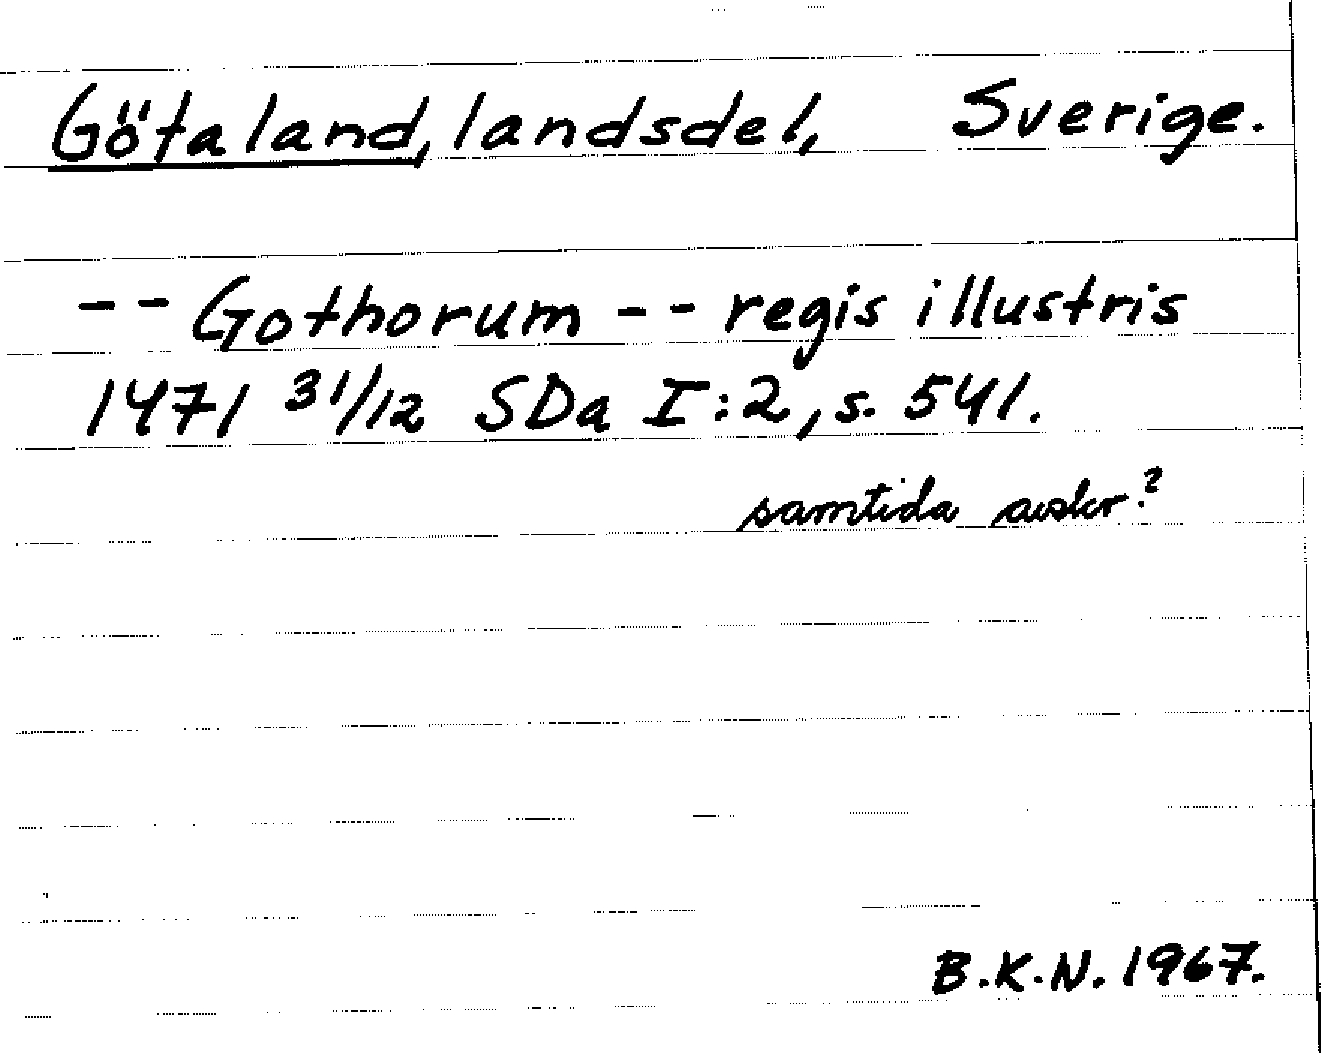 Götaland, landsdel, Sverige.
-- Gothorum -- regis illustris
1471 31/12 SDa I:2, s. 541.
samtida avskr?
B.K.N. 1967.